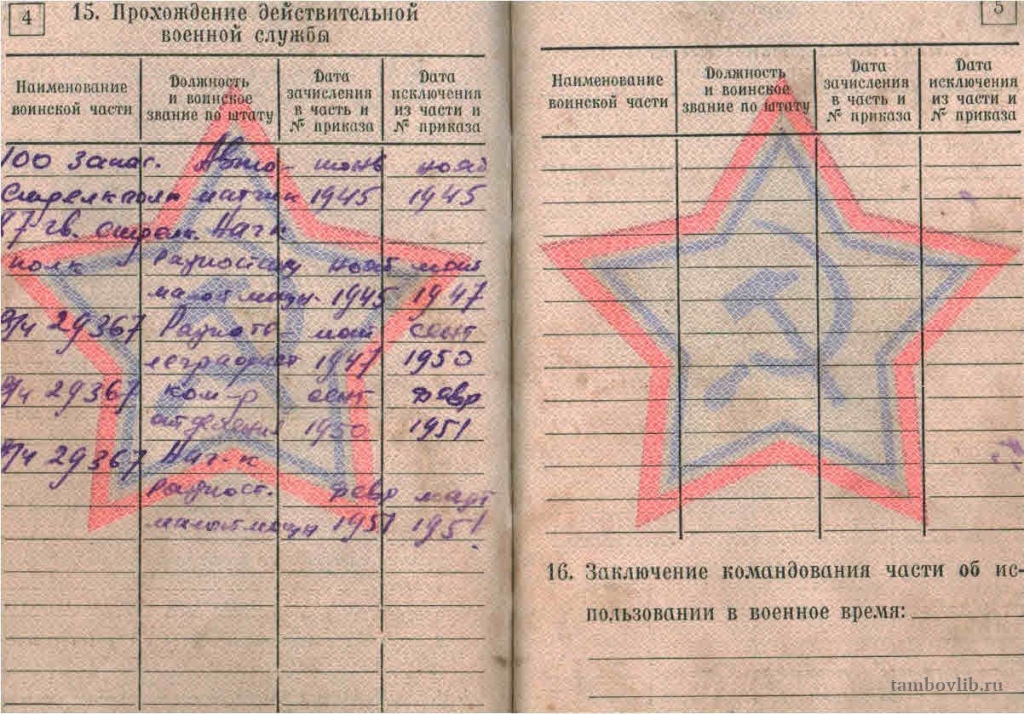 4
15. Прохождение действительной
военной службы
Наименование воинской части
Должность и воинское звание по штату
Дата зачисления в часть и № приказа
Дата исключения из части и № приказа
100 запас. Авто- июнь нояб
Стрелк полк матчик 1945 1945
17 гв. стрелк. Нач-к
полк Радиостанц нояб май
малой мощн. 1945 1947
В/ч 29367 Радиоте- май сент
леграфист 1947 1950
В/ч 29367 Ком-р сент февр
отделения 1950 1951
В/ч 29367 Нач-к
радиост. февр март
малой мощн 1951 1951.
5
Наименование воинской части
Должность и воинское звание по штату
Дата зачисления в часть и № приказа
Дата исключения из части и № приказа
16. Заключение командования части об ис-
пользовании в военное время:
tambovlib.ru